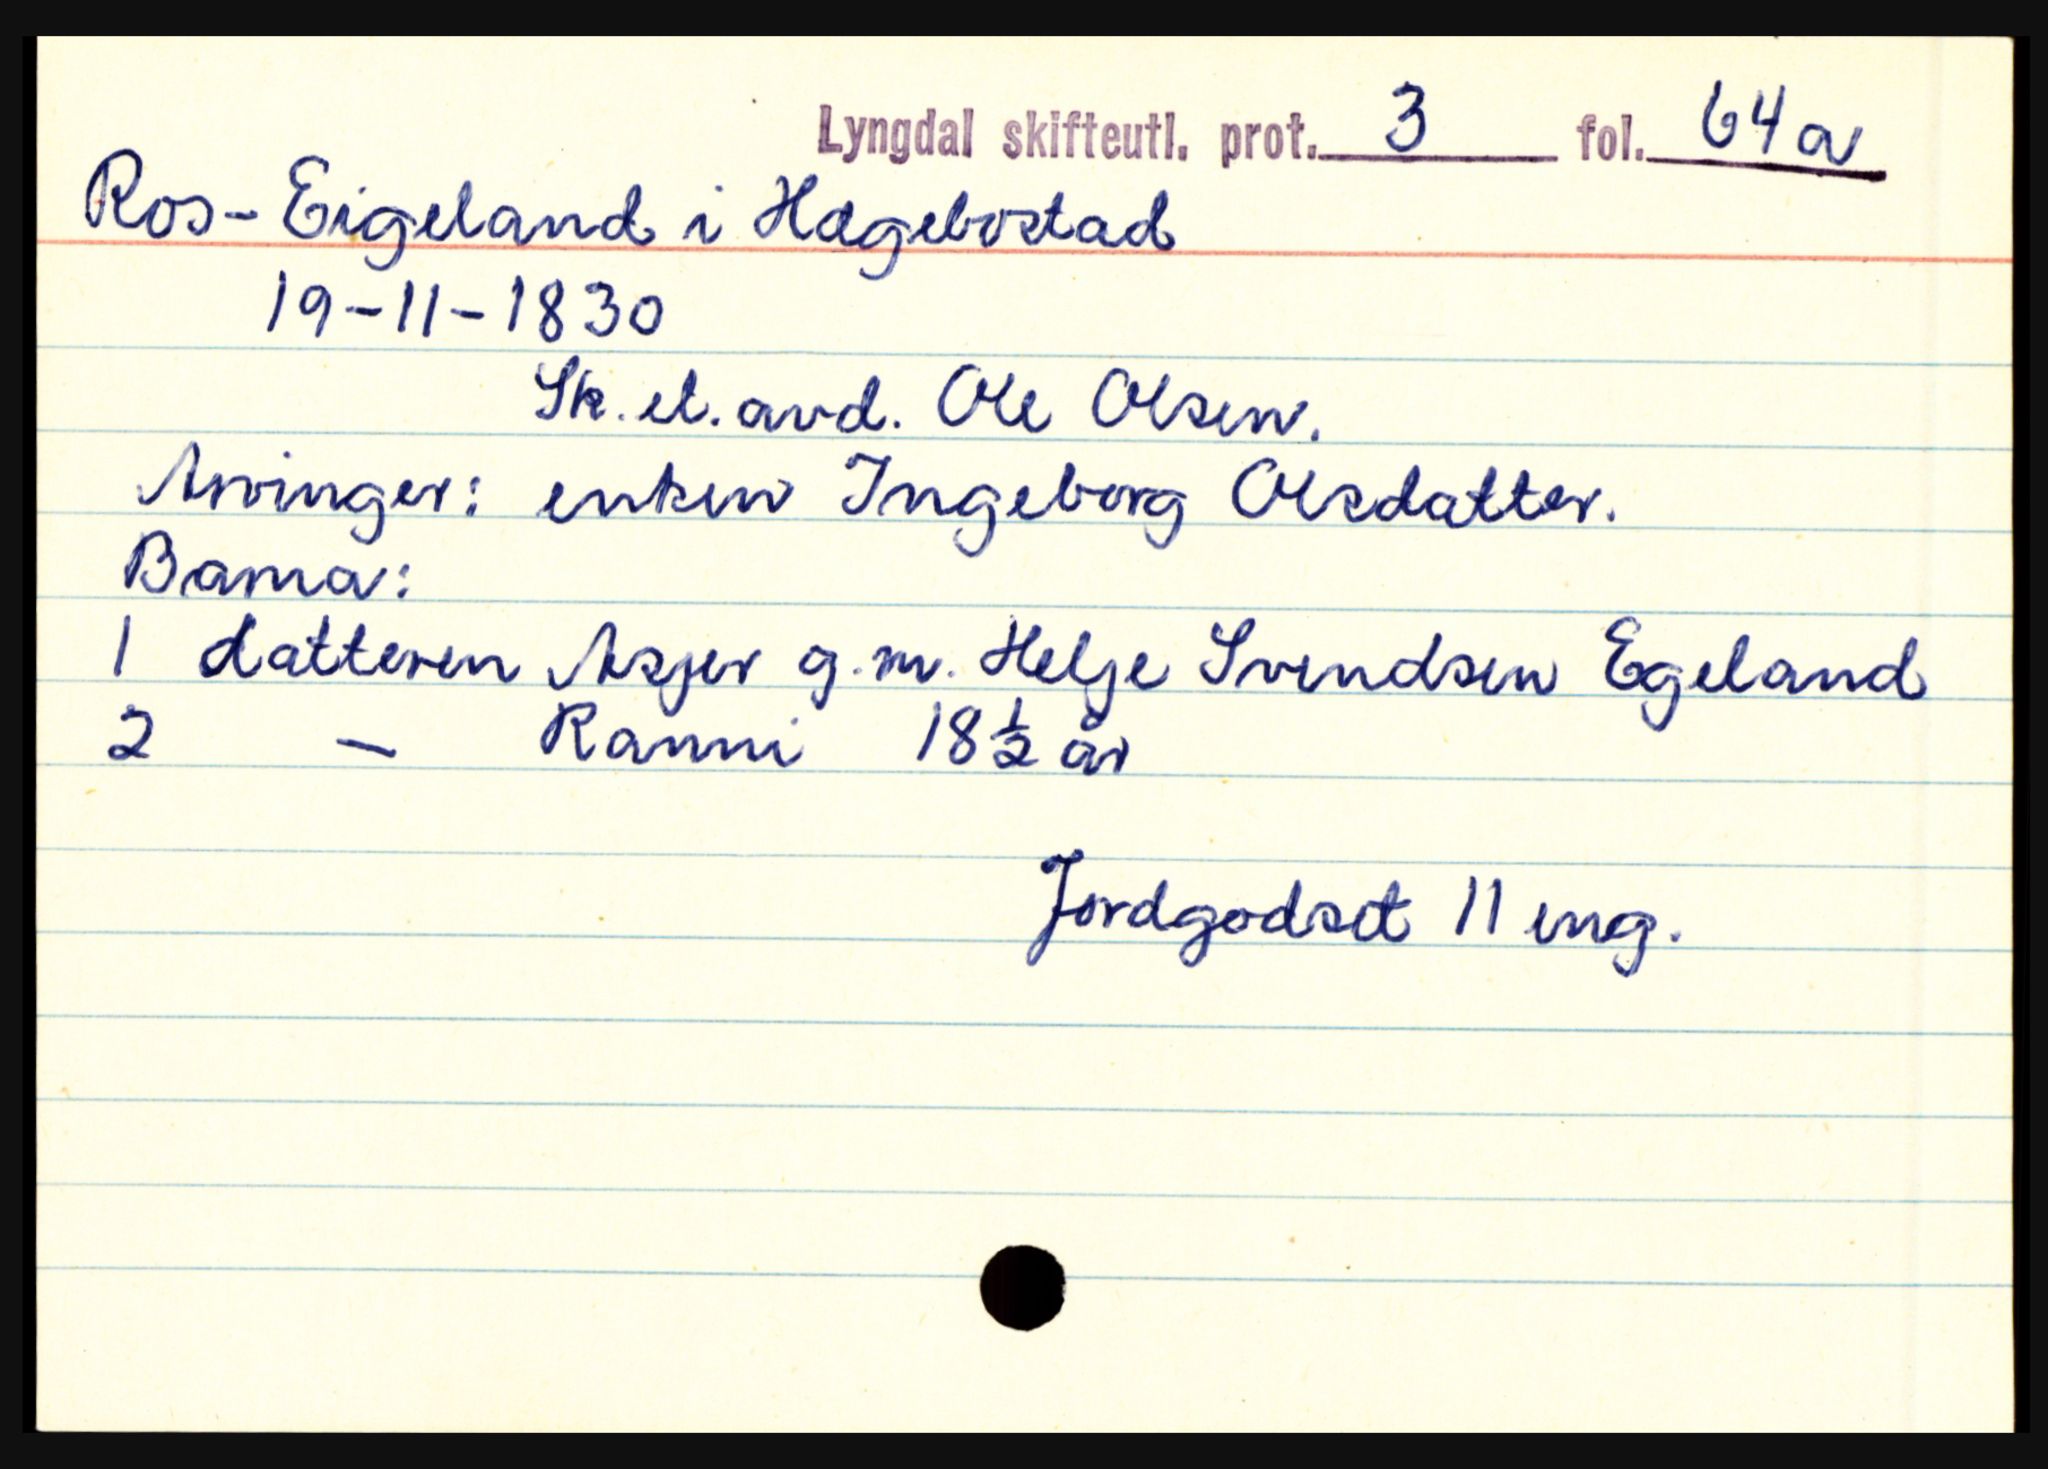 Lyngdal skifteutl. prot. 3 fol. 64a
Ros-Eigeland i Hægebostad
19-11-1830
Sk. et. avd. Ole Olsen.
Arvinger: enken Ingeborg Olsdatter.
Barna:
1 datteren Asjer g.m. Helje Svendsen Egeland
2 — Ranni 18½ år
Jordgodset 11 eng.